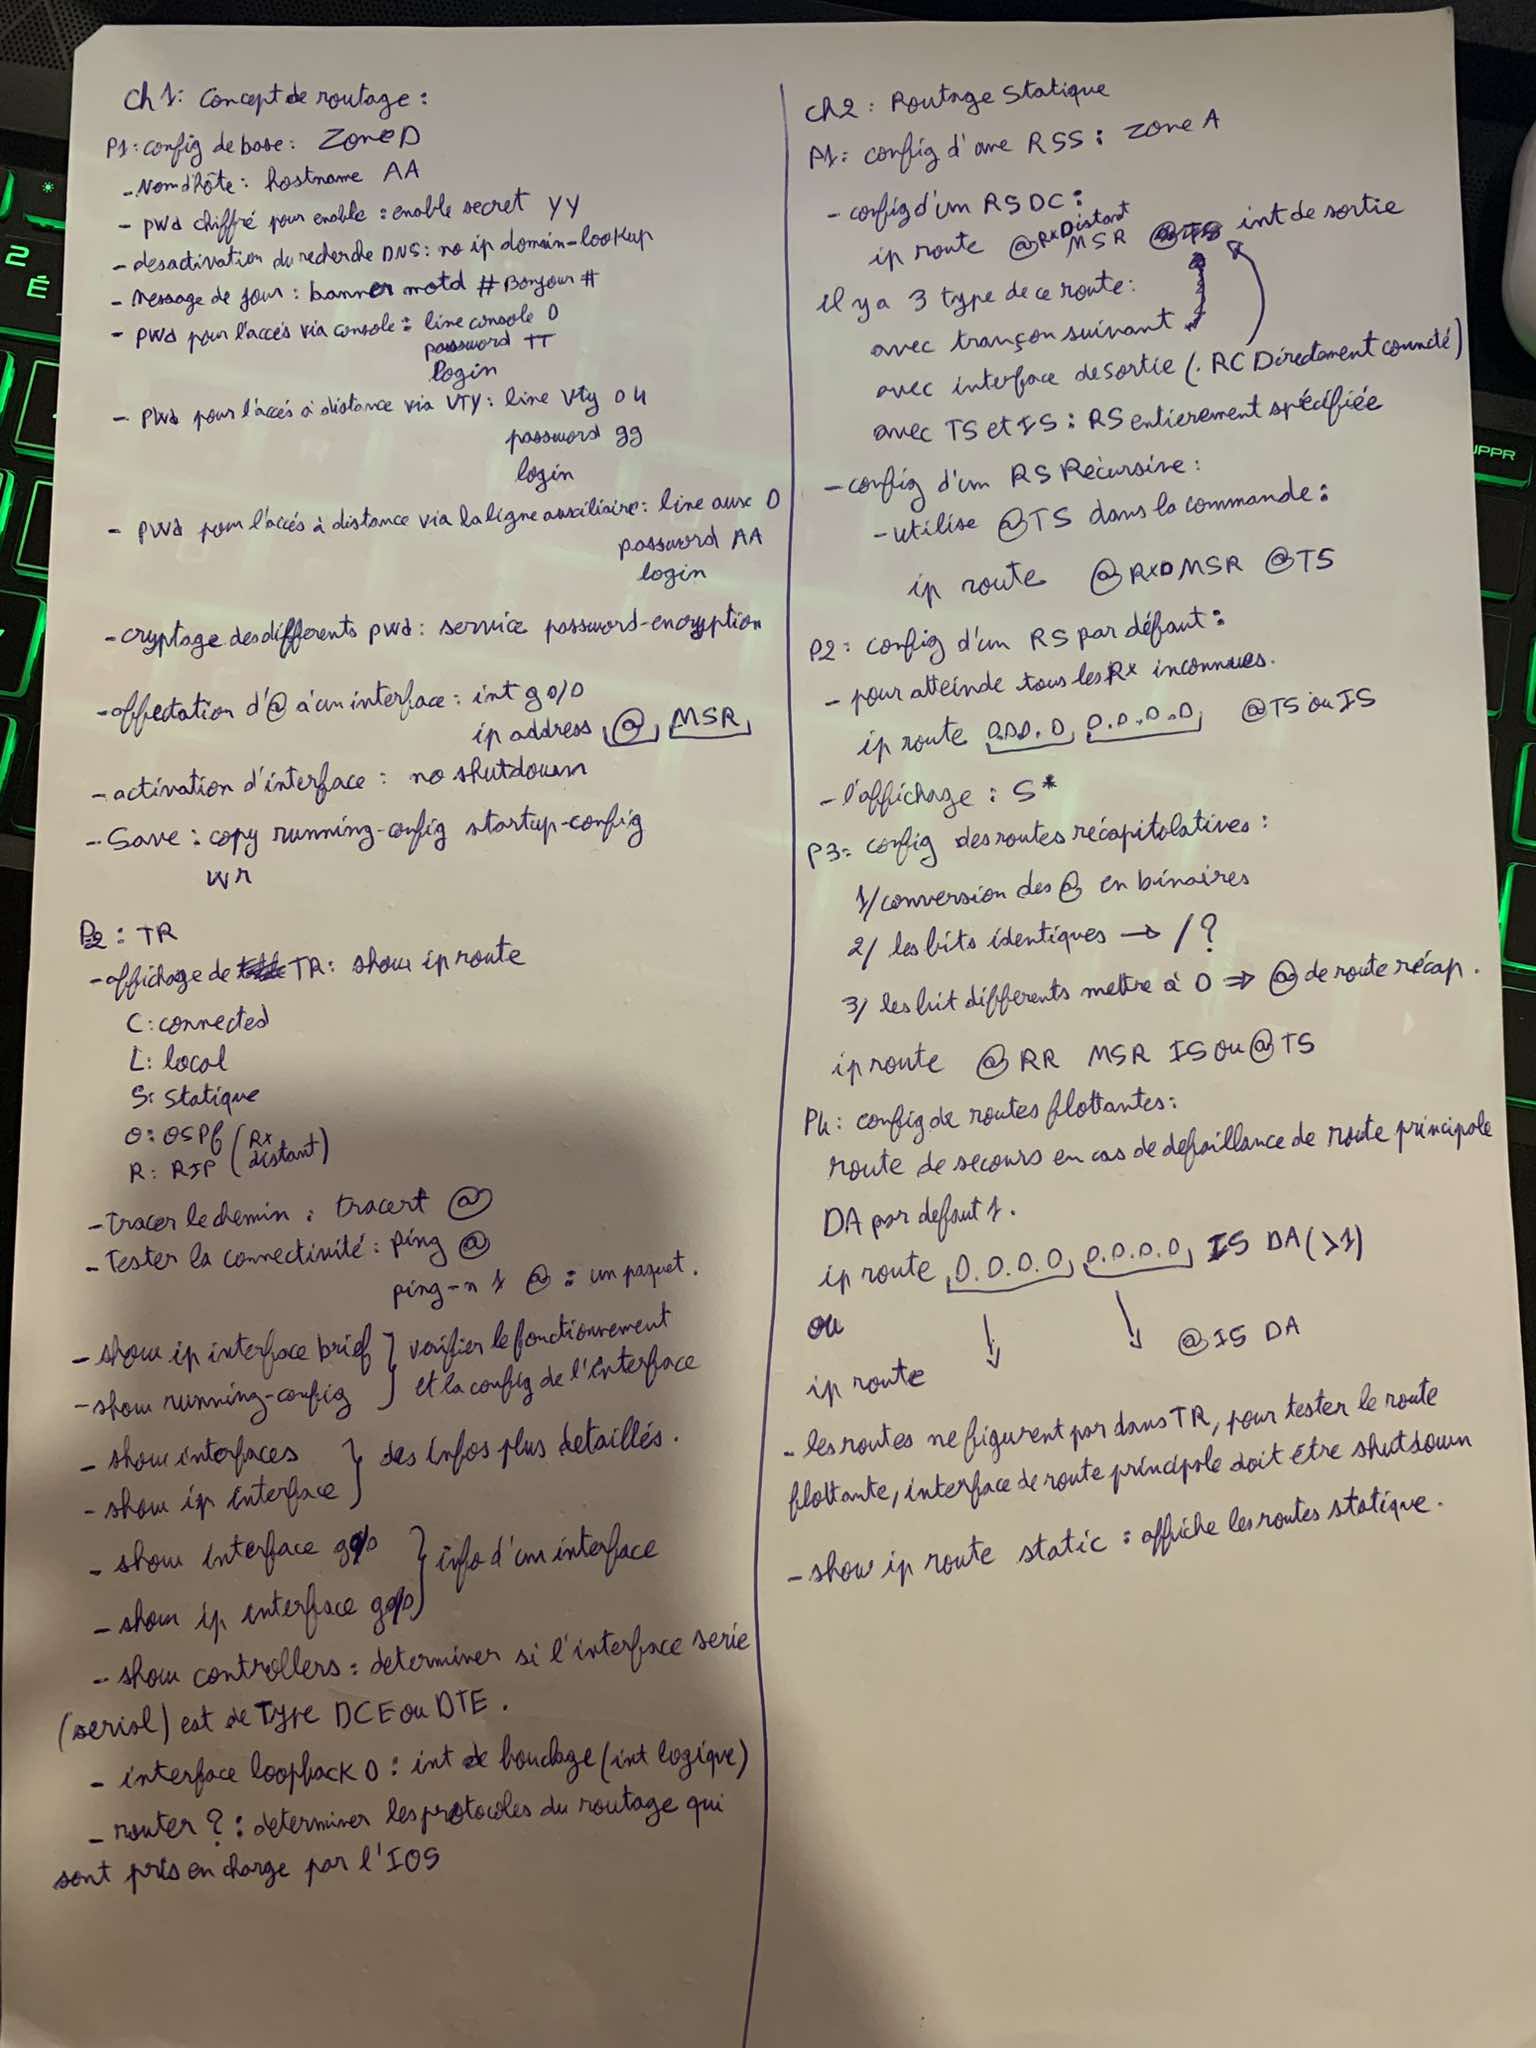 Ch1: Concept de routage :
P1: config de base: Zone D
- Nom d'hôte: hostname AA
- pwd chiffré pour enable : enable secret YY
- desactivation du recherche DNS: no ip domain-lookup
- Message de jour : banner motd # Bonjour #
- pwd pour l'accés via console : line console 0
password TT
login
- pwd pour l'accés à distance via VTY: line vty 0 4
password gg
login
- pwd pour l'accés à distance via la ligne auxiliaire: line aux 0
password AA
login
- cryptage des differents pwd: service password-encryption
- affectation d'@ à un interface: int g0/0
ip address @ MSR
- activation d'interface : no shutdown
- Save : copy running-config startup-config
wr
P2 : TR
- affichage de TR: show ip route
C: connected
L: local
S: statique
O: OSPf (Rx
R: RIP distant)
- tracer le chemin : tracert @
- Tester la connectivité : ping @
ping -n 1 @ : un paquet.
- show ip interface brief } verifier le fonctionnement
- show running-config et la config de l'interface
- show interfaces } des infos plus detaillés.
- show ip interface
- show interface g0/0 } info d'un interface
- show ip interface g0/0
- show controllers : determiner si l'interface serie
(serial) est de Type DCE ou DTE.
- interface loopback 0 : int de bouclage (int logique)
- router ? : determiner les protocoles du routage qui
sont pris en charge par l'IOS
Ch2 : Routage Statique
P1: config d'une RSS : Zone A
- config d'un RSDC :
ip route @RxDistant MSR int de sortie
il y a 3 type de ce route:
avec trançon suivant
avec interface de sortie (. RC Directement connecté)
avec TS et IS : RS entierement spécifiée
- config d'un RS Récursive:
- utilise @TS dans la commande :
ip route @RxD MSR @TS
P2: config d'un RS par défaut :
- pour atteinde tous les Rx inconnues.
ip route 0.0.0.0 0.0.0.0 @TS ou IS
- l'affichage : S*
P3: config des routes récapitolatives :
1/ conversion des @ en binaires
2/ les bits identiques → / ?
3/ les bit différents mettre à 0 ⇒ @ de route récap.
ip route @RR MSR IS ou @TS
P4: config de routes flottantes:
route de secours en cas de defaillance de route principale
DA par defaut 1.
ip route 0.0.0.0 0.0.0.0 IS DA (>1)
ou
ip route ↓ ↓ @IS DA
- les routes ne figurent pas dans TR, pour tester le route
flottante, interface de route principale doit étre shutdown
- show ip route static : affiche les routes statique.